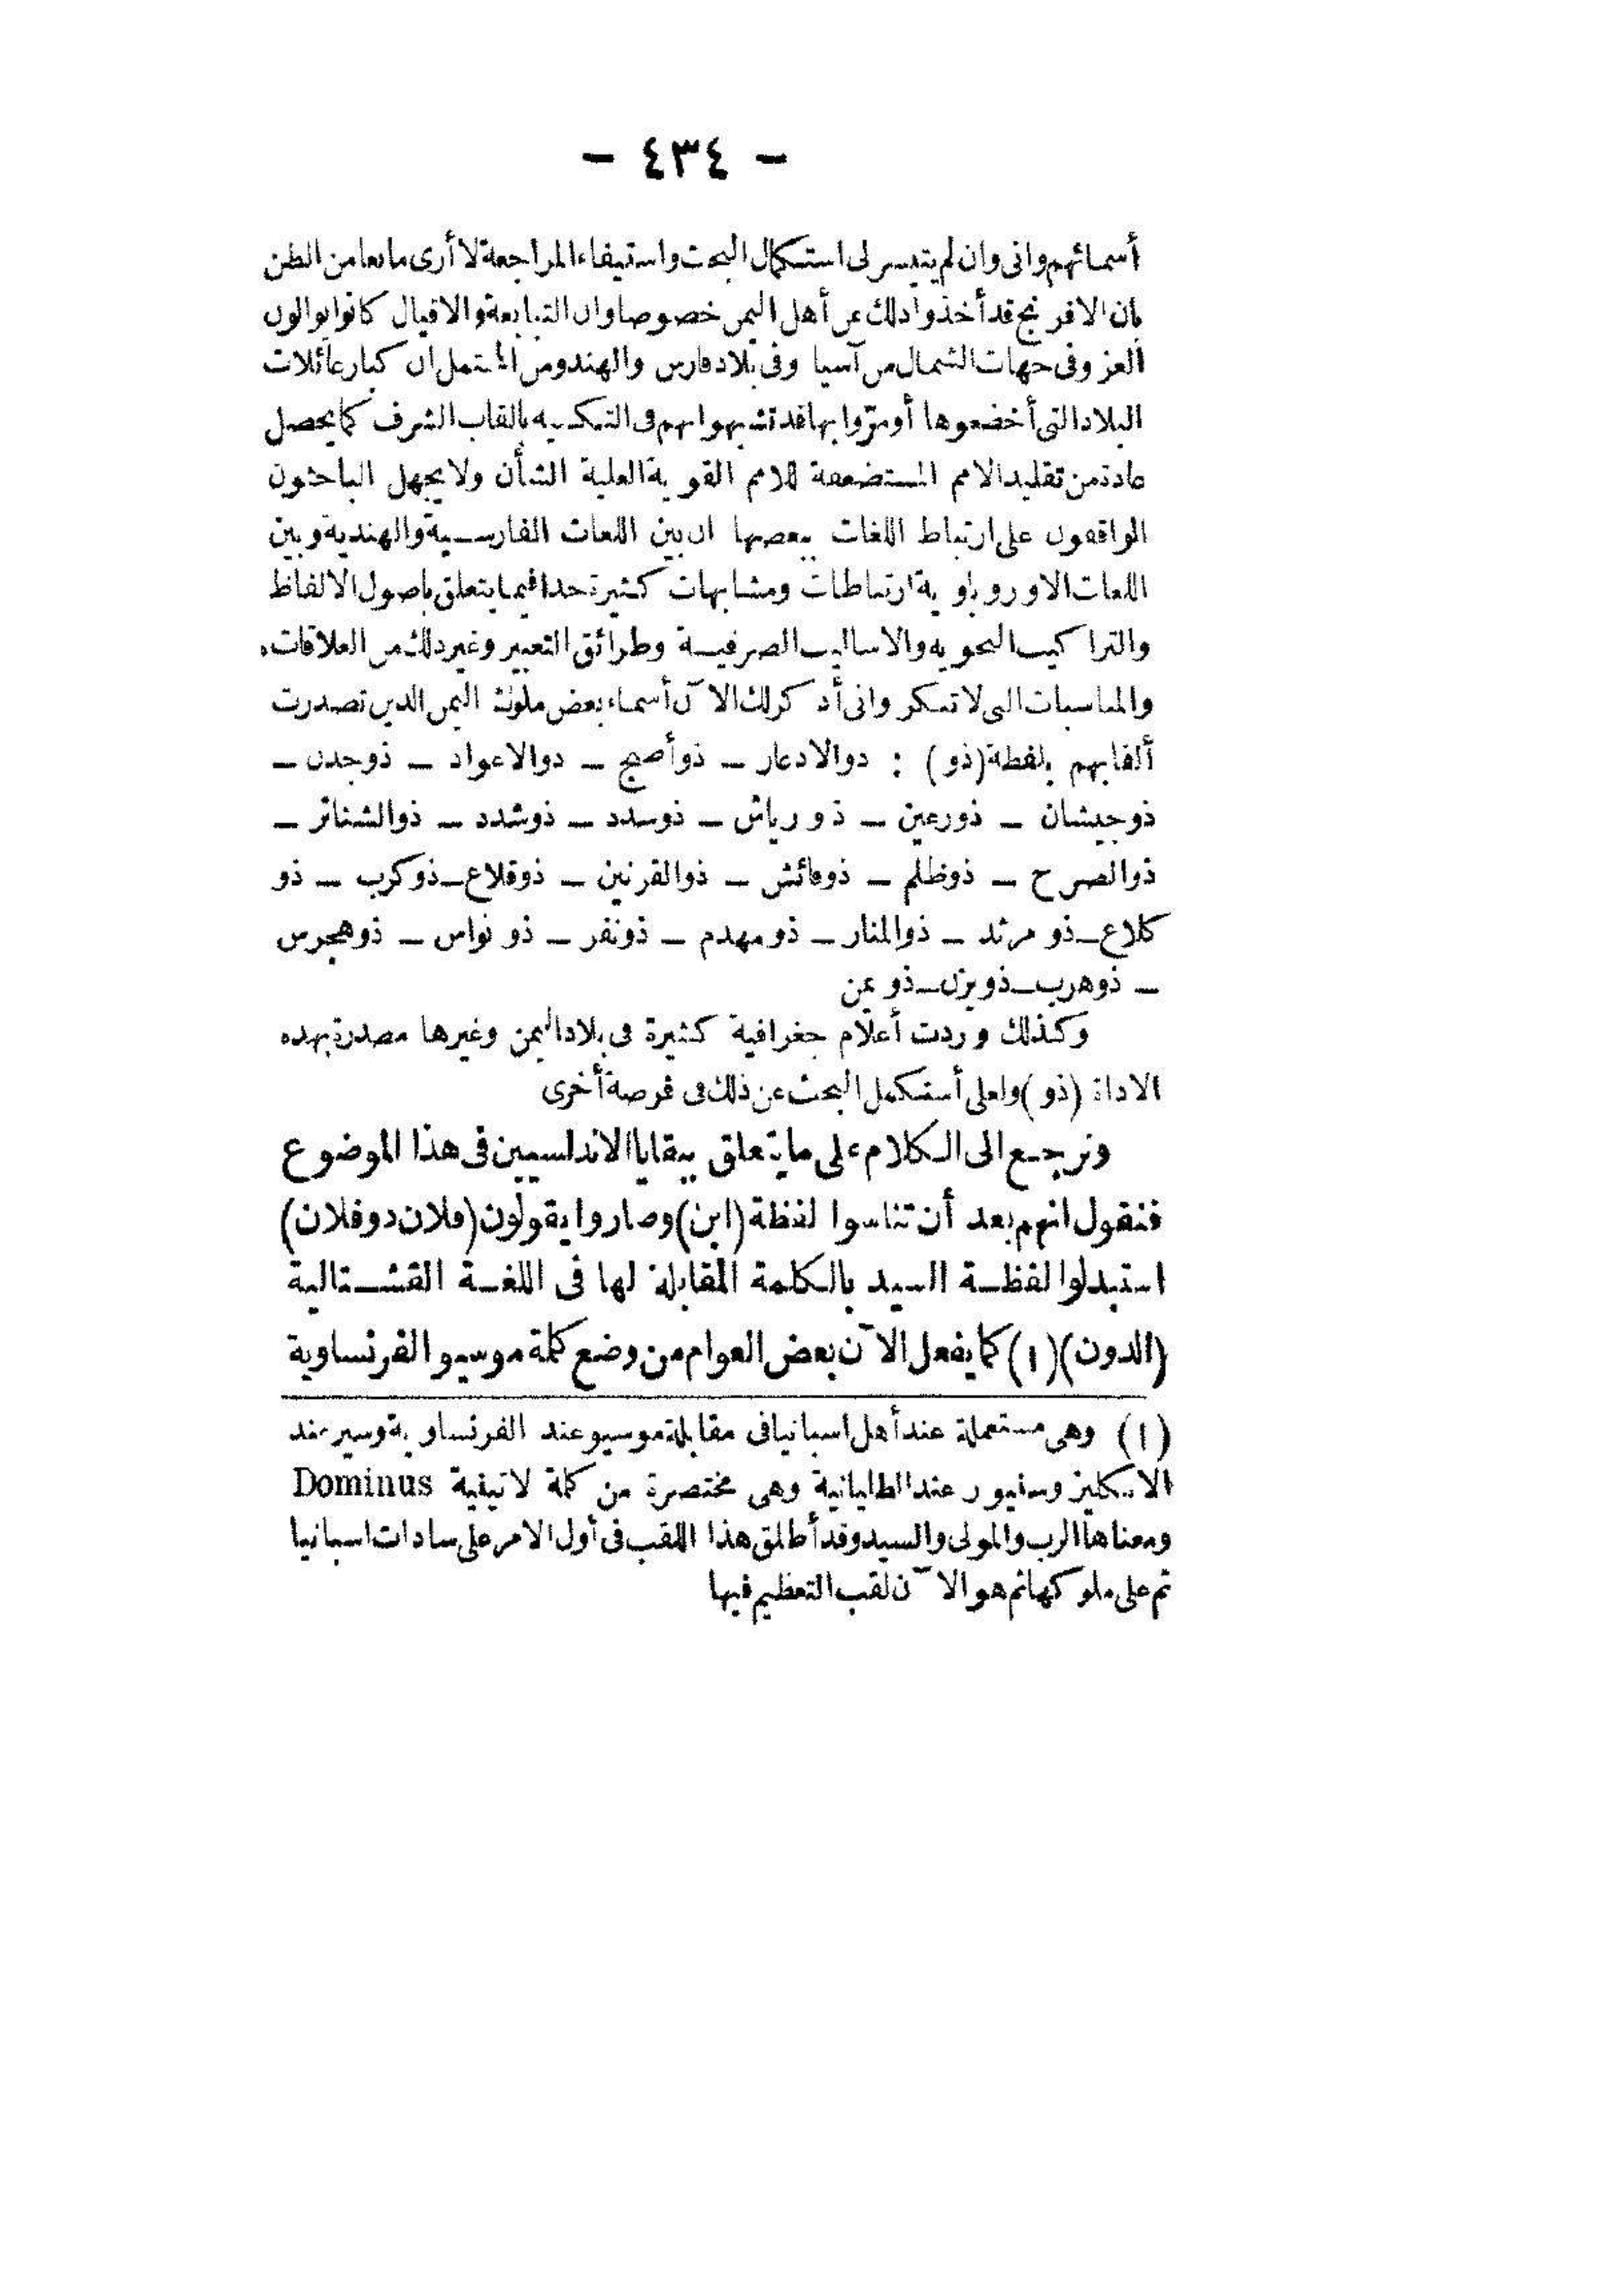 - ٤٣٤ -
أسمائهم وانى وان لم يتيسر لى استكمال البحث واستيفاء المراجعة لا أرى مانعا من الظن
بان الافرنج قد أخذوا ذلك عن أهل اليمن خصوصا وان التبابعة والاقيال كانوا يوالون
الغزو فى جهات الشمال من آسيا وفى بلاد فارس والهند ومن المحتمل ان كبار عائلات
البلاد التى أخضعوها أو مرّوا بها قد تشبهوا بهم فى التكنيه بألقاب الشرف كما يحصل
عادة من تقليد الامم المستضعفة للامم القوية العلية الشأن ولا يجهل الباحثون
الواقفون على ارتباط اللغات ببعضها ان بين اللغات الفارسية والهندية وبين
اللغات الاوروباوية ارتباطات ومشابهات كثيرة جدا فيما يتعلق باصول الالفاظ
والتراكيب النحويه والاساليب الصرفية وطرائق التعبير وغير ذلك من العلاقات
والمناسبات التى لا تنكر وانى أذكر لك الآن أسماء بعض ملوك اليمن الذين تصدرت
ألقابهم بلفظة (ذو) : ذو الاذعار – ذو أصبح – ذو الاعواد – ذو جدن –
ذو جيشان – ذو رعين – ذو رياش – ذو سدد – ذو شدد – ذو الشناتر –
ذو الصرح – ذو ظلم – ذو فائش – ذو القرنين – ذو قلاع – ذو كرب – ذو
كلاع – ذو مرثد – ذو المنار – ذو مهدم – ذو نفر – ذو نواس – ذو هجرس
– ذو هرب – ذو يزن – ذو يمن
وكذلك وردت أعلام جغرافية كثيرة فى بلاد اليمن وغيرها مصدرة بهذه
الاداة (ذو) ولعلى أستكمل البحث عن ذلك فى فرصة أخرى
ونرجع الى الكلام على ما يتعلق ببقايا الاندلسيين فى هذا الموضوع
فنقول انهم بعد أن تناسوا لفظة (ابن) وصاروا يقولون (فلان دو فلان)
استبدلوا لفظة السيد بالكلمة المقابلة لها فى اللغة القشتالية
(الدون) (١) كما يفعل الآن بعض العوام من وضع كلمة موسيو الفرنساوية
(١) وهى مستعملة عند أهل اسبانيا فى مقابلة موسيو عند الفرنساوية وسير عند
الانكليز وسنيور عند الطليانية وهى مختصرة من كلمة لاتينية Dominus
ومعناها الرب والمولى والسيد وقد أطلق هذا اللقب فى أول الامر على سادات اسبانيا
ثم على ملوكها ثم هو الآن لقب التعظيم فيها